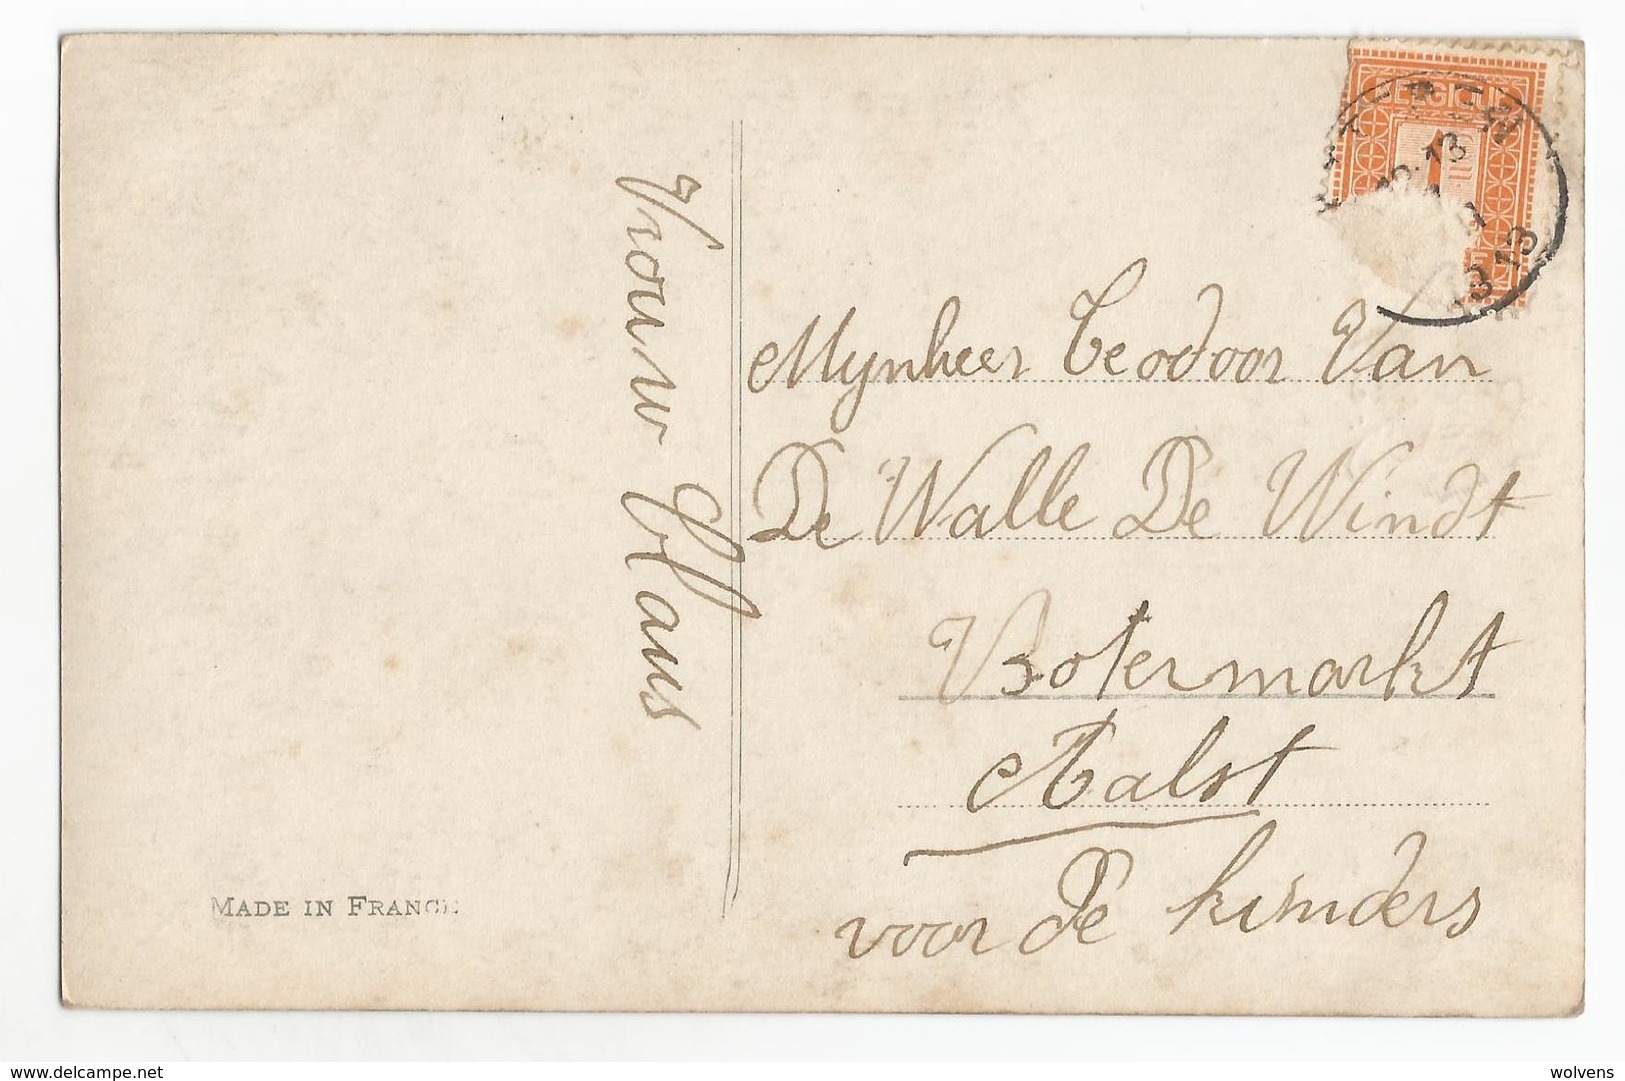 Vrouw Claus
MADE IN FRANCE
BELGIQUE
1
13
13
Mynheer Teodoor Van
De Walle De Windt
Botermarkt
Aalst
voor de kinders
delcampe.net
wolvens